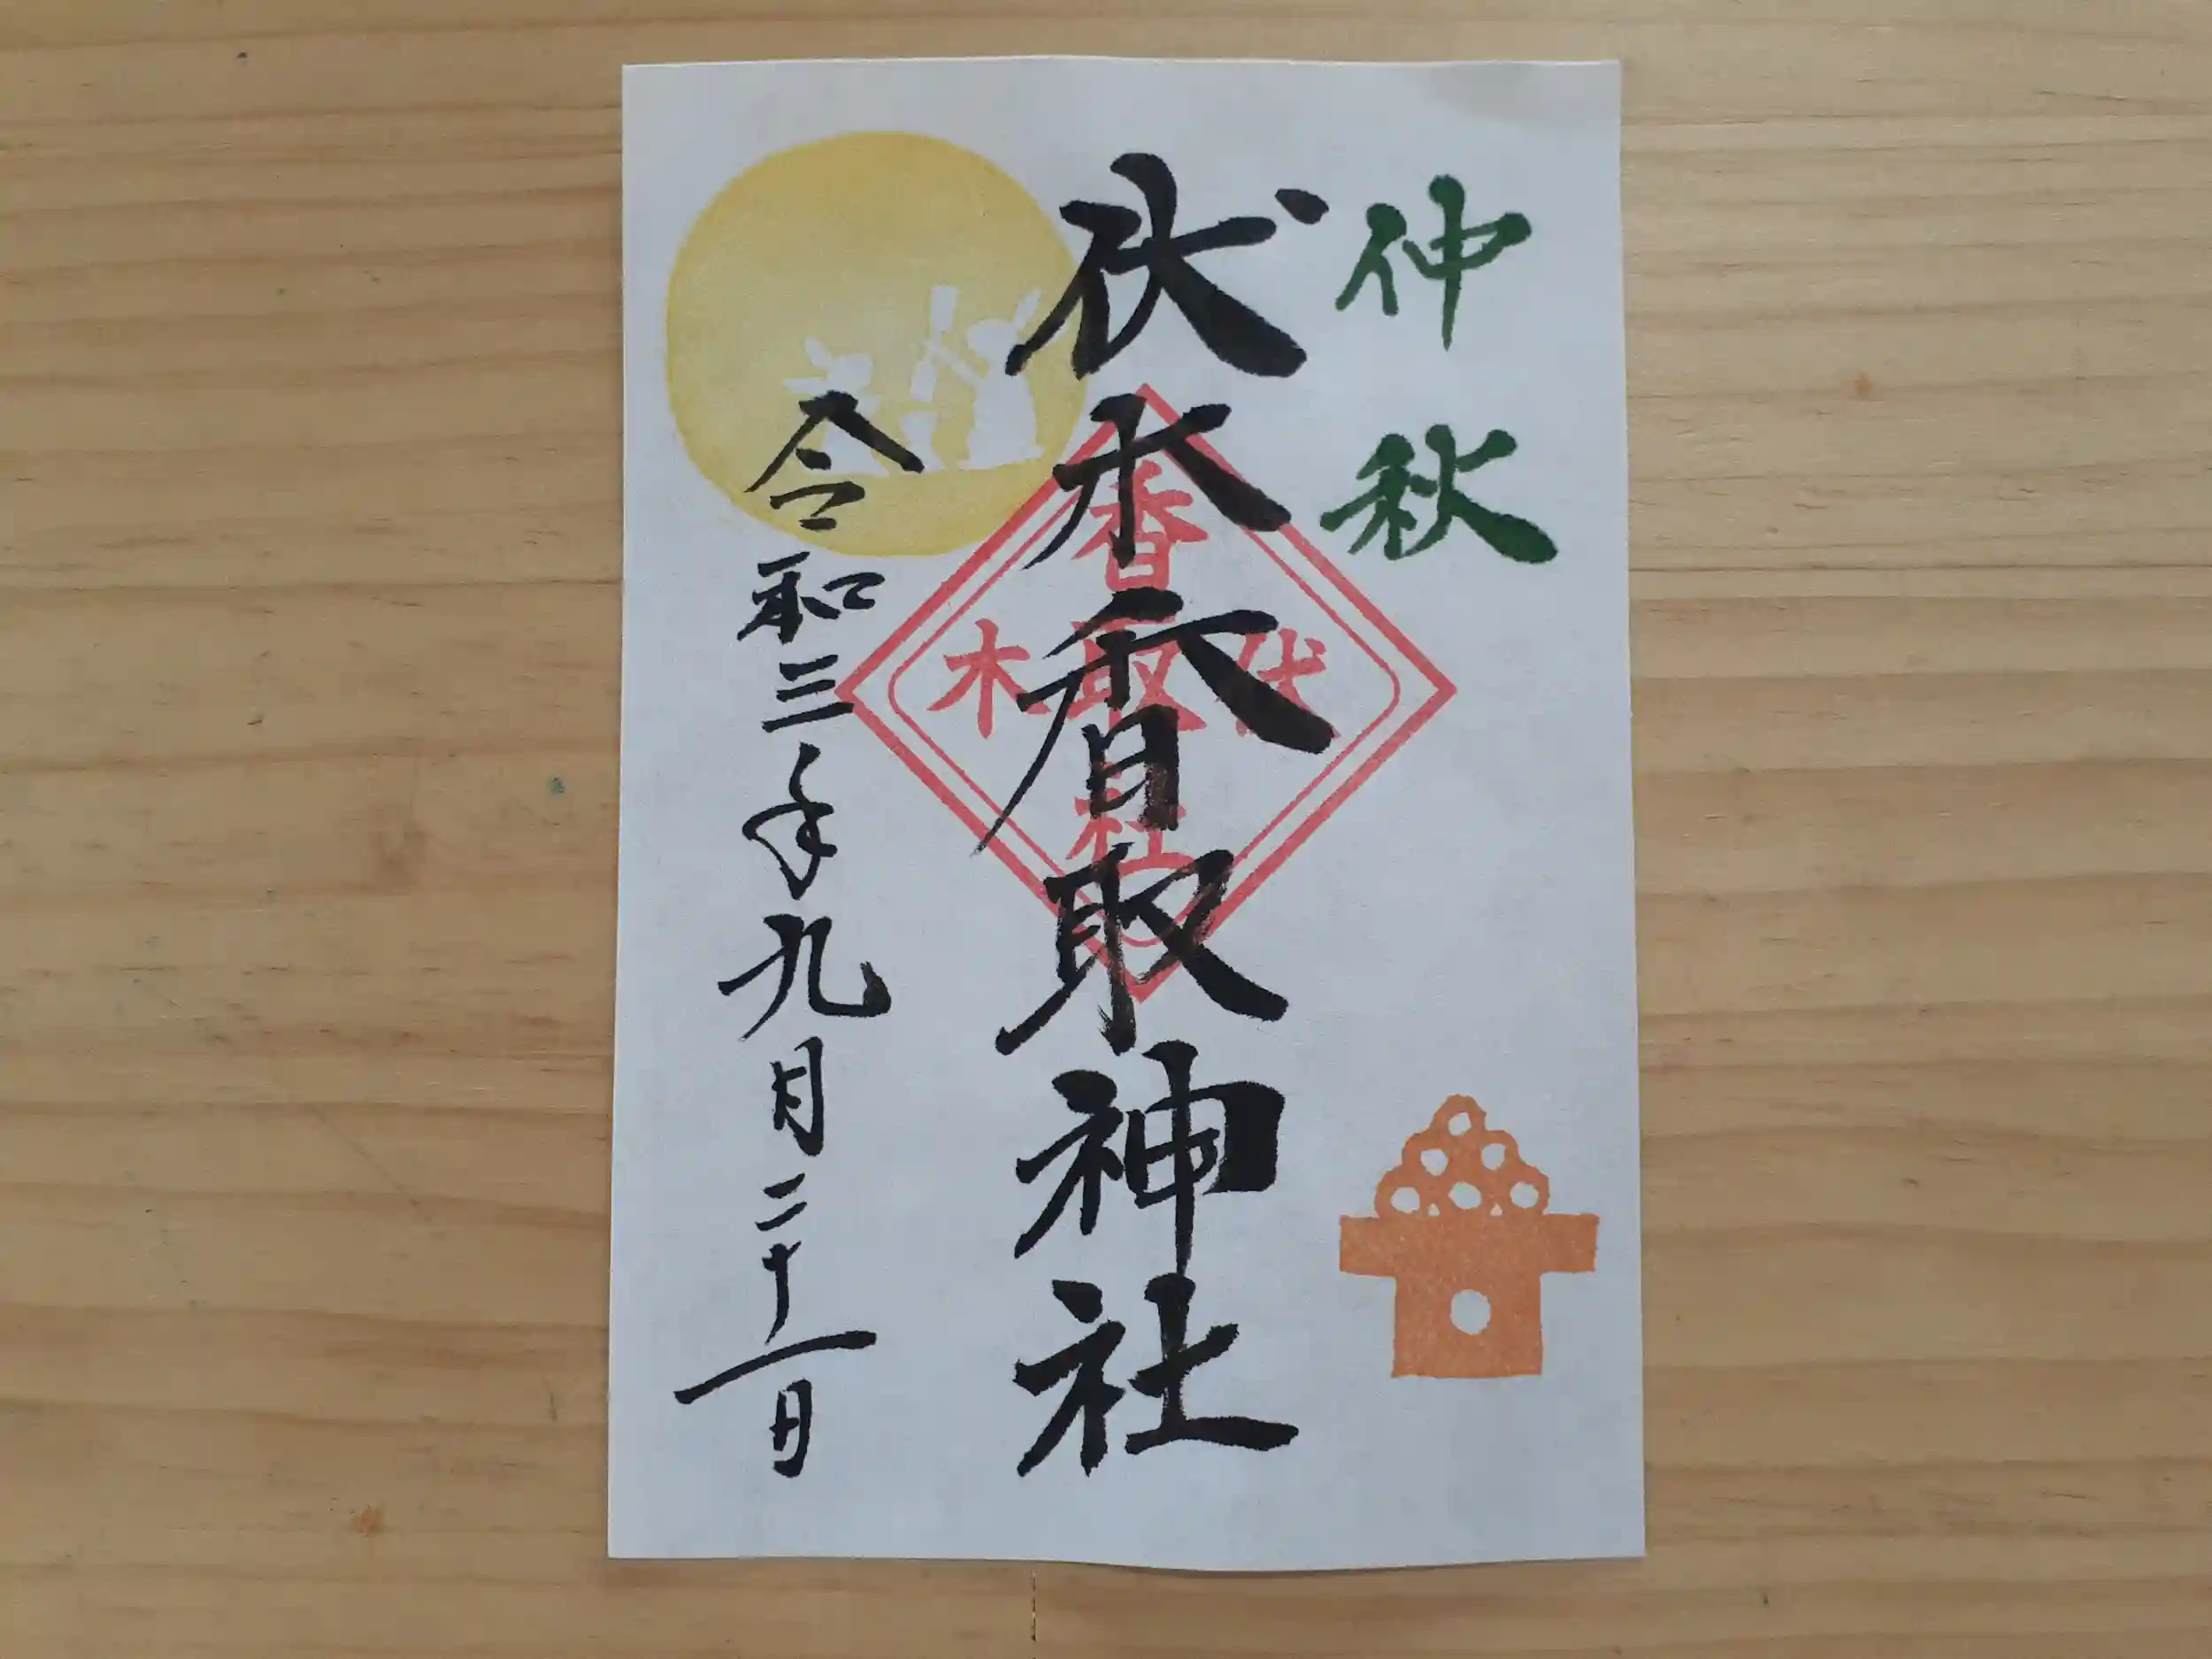 仲秋
伏木香取神社
香
伏取木
社
令和三年九月二十一日